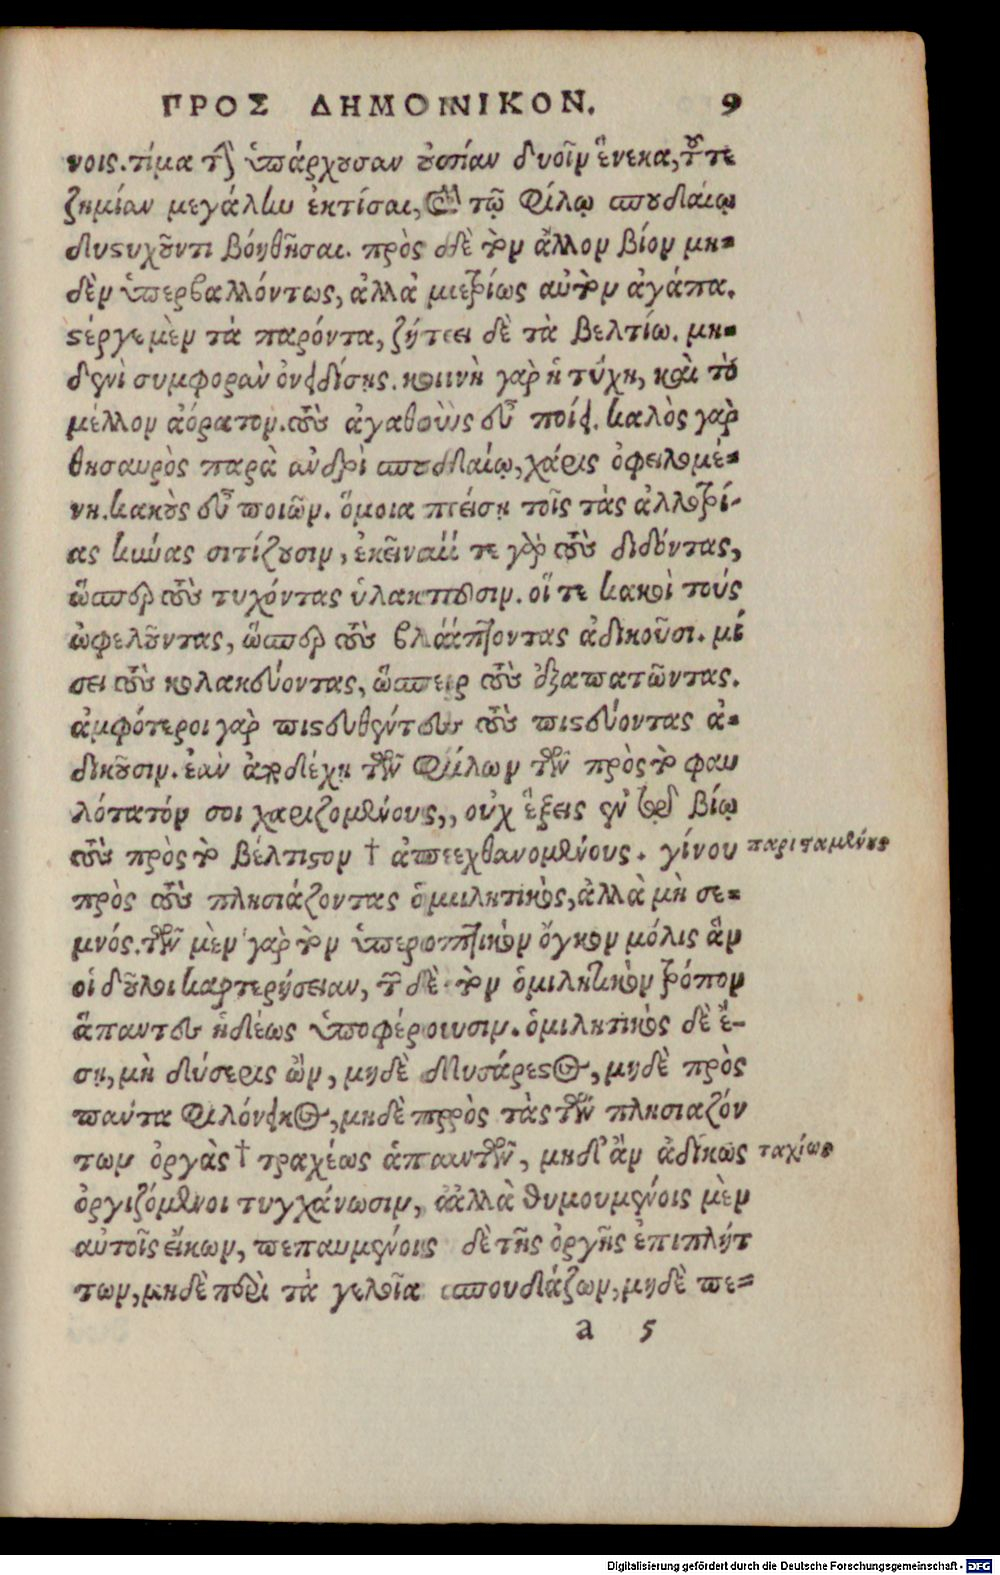 ΠΡΟΣ ΔΗΜΟΝΙΚΟΝ. 9
νοις. τίμα τὴν ὑπάρχουσαν οὐσίαν δυοῖν ἕνεκα, τοῦ τε
ζημίαν μεγάλην ἐκτίσαι, καὶ τῷ φίλῳ σπουδαίῳ
δυστυχοῦντι βόηθῆσαι. πρὸς δὲ τὸν ἄλλον βίον μη=
δὲν ὑπερβαλλόντως, ἀλλὰ μετρίως αὐτὸν ἀγάπα.
στέργε μὲν τὰ παρόντα, ζήτει δὲ τὰ βελτίω. μη=
δενὶ συμφορὰν ὀνειδίσῃς. κοινὴ γὰρ ἡ τύχη, καὶ τὸ
μέλλον ἀόρατον. τοὺς ἀγαθοὺς εὖ ποίει. καλὸς γὰρ
θησαυρὸς παρὰ ἀνδρὶ σπουδαίῳ, χάρις ὀφειλομέ=
νη. κακοὺς εὖ ποιῶν. ὅμοια πείσῃ τοῖς τὰς ἀλλοτρί-
ας κύνας σιτίζουσιν, ἐκεῖναί τε γὰρ τοὺς διδόντας,
ὥσπερ τοὺς τυχόντας ὑλακτοῦσιν. οἵ τε κακοὶ τούς
ὠφελοῦντας, ὥσπερ τοὺς βλάπτοντας ἀδικοῦσι. μί
σει τοὺς κολακεύοντας, ὥσπερ τοὺς ἐξαπατῶντας.
ἀμφότεροι γὰρ πιστευθέντες τοὺς πιστεύοντας ἀ=
δικοῦσιν. ἐὰν ἀποδέχῃ τῶν φίλων τῶν πρὸς τὸ φαυ
λότατόν σοι χαριζομένους, οὐχ ἕξεις ἐν τῷ βίῳ
τοὺς πρὸς τὸ βέλτιστον † ἀπεχθανομένους. γίνου παριταμένους
πρὸς τοὺς πλησιάζοντας ὁμιλητικὸς, ἀλλὰ μὴ σε=
μνός. τῶν μὲν γὰρ τὸν ὑπεροπτικὸν ὄγκον μόλις ἂν
οἱ δοῦλοι καρτερήσειαν, τὸν δὲ τὸν ὁμιλητικὸν τρόπον
ἅπαντες ἡδέως ὑποφέρουσιν. ὁμιλητικὸς δὲ ἔ-
σῃ, μὴ δύσερις ὢν, μηδὲ δυσάρεστος, μηδὲ πρὸς
πάντα φιλόνεικος, μηδὲ πρὸς τὰς τῶν πλησιαζόν
των ὀργὰς † τραχέως ἀπαντῶν, μηδ' ἂν ἀδίκως ταχέως
ὀργιζόμενοι τυγχάνωσιν, ἀλλὰ θυμουμένοις μὲν
αὐτοῖς εἴκων, πεπαυμένοις δὲ τῆς ὀργῆς ἐπιπλήτ
των, μηδὲ περὶ τὰ γελοῖα σπουδάζων, μηδὲ πε=
a 5
Digitalisierung gefördert durch die Deutsche Forschungsgemeinschaft - DFG